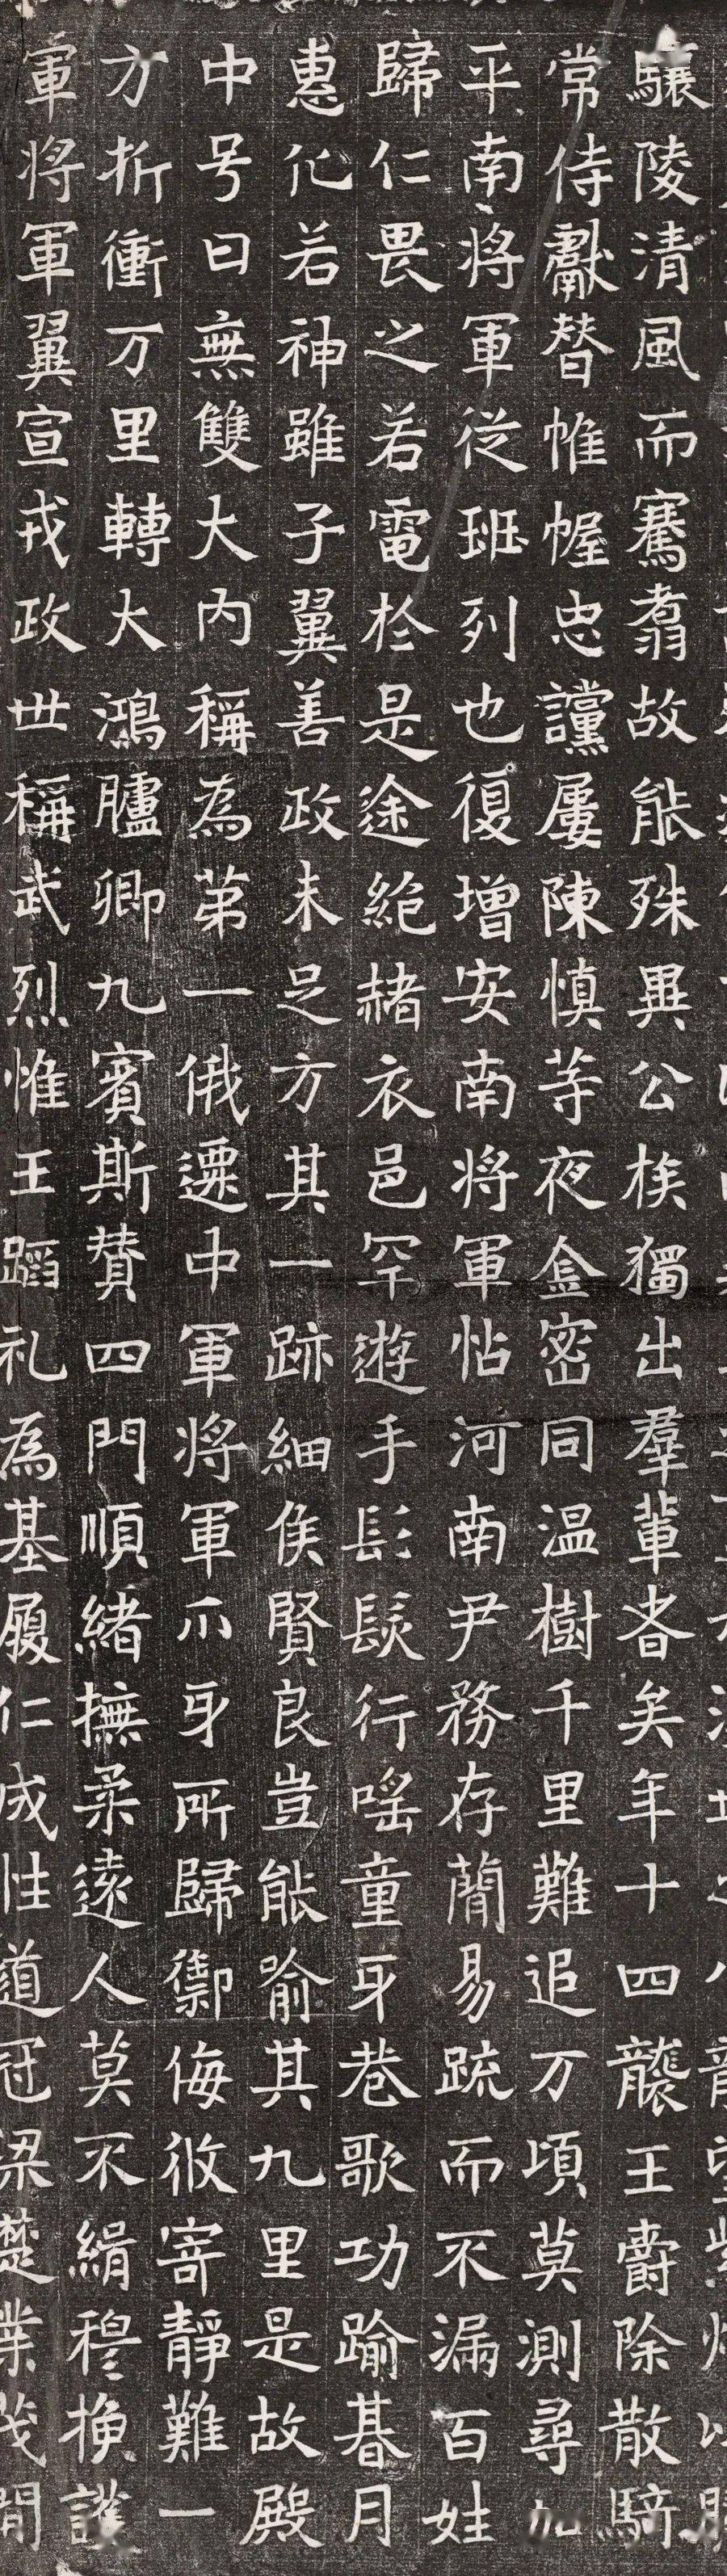 驤陵清風而騫翥故能殊異公族獨出羣輩者矣年十四襲王爵除散騎
常侍獻替帷幄忠讜屢陳慎等夜金密同温樹千里難追万頃莫測尋加
平南将軍從班列也復增安南将軍怗河南尹務存蕳易疏而不漏百姓
歸仁畏之若電於是途絶赭衣邑罕遊手髟髮行謡童牙巷歌功踰朞月
惠化若神雖子翼善政未足方其一跡細侯賢良豈能喻其九里是故殿
中号曰無雙大内稱為苐一俄遷中軍将軍爪牙所歸禦侮攸寄靜難一
方折衝万里轉大鴻臚卿九賓斯贊四門順緒撫柔遠人莫不緝穆換護
軍将軍翼宣戎政世稱武烈惟王蹈礼為基履仁成性道冠梁楚業茂間